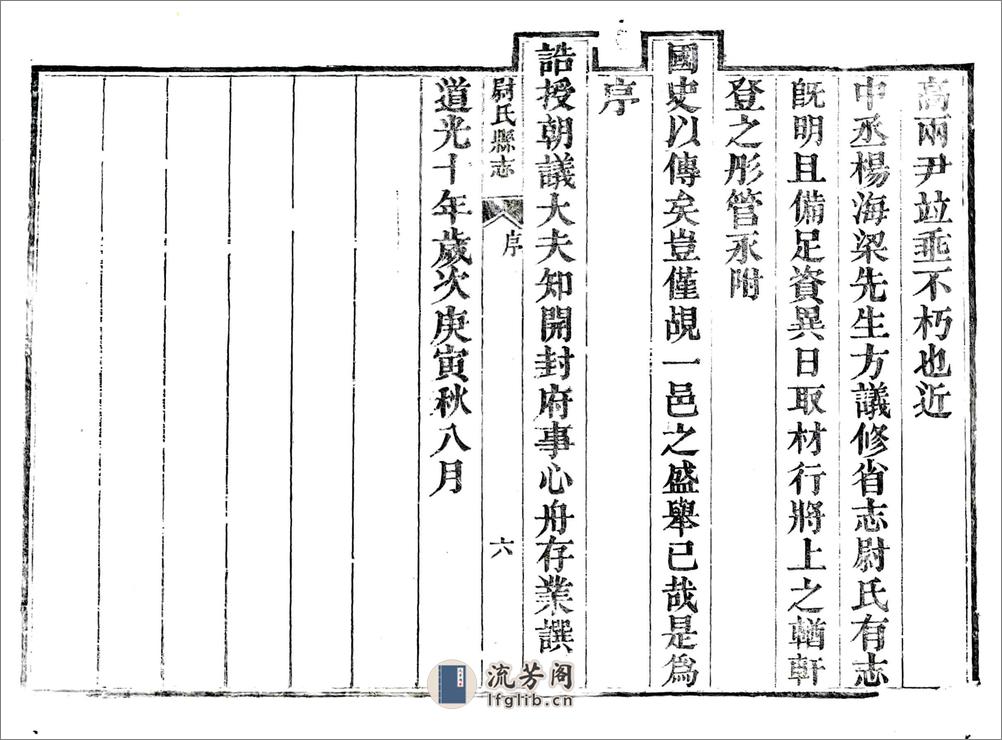 高兩尹竝乖不朽也近
中丞楊海梁先生方議修省志尉氏有志
旣明且備足資異日取材行將上之輶軒
登之彤管永附
國史以傳矣豈僅覘一邑之盛舉已哉是為
序
誥授朝議大夫知開封府事心舟存業譔
尉氏縣志
序
六
道光十年歲次庚寅秋八月
流芳阁
lfglib.cn